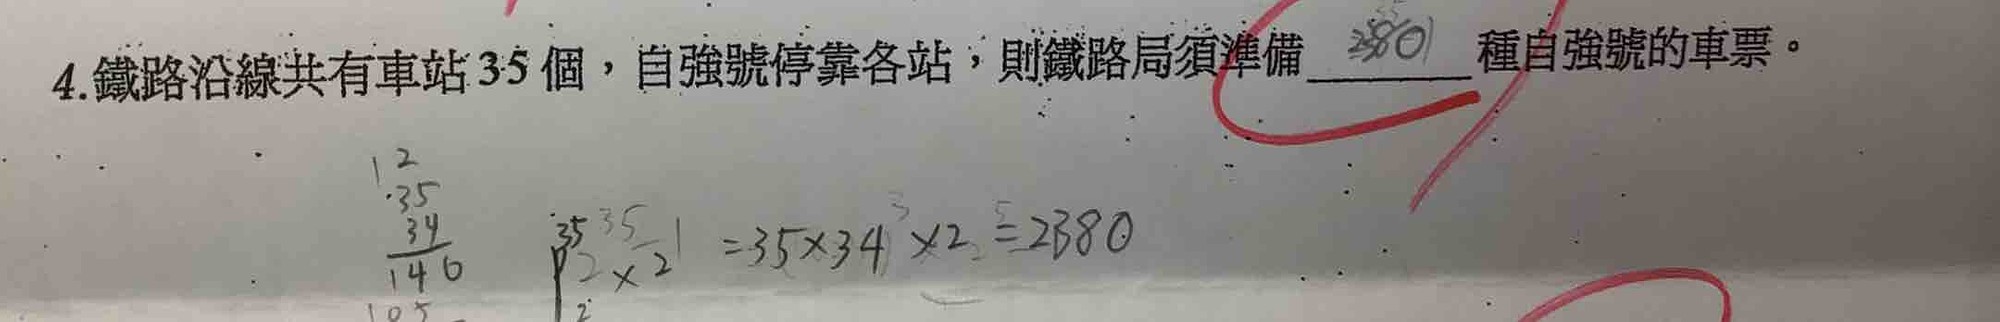 4.鐵路沿線共有車站35個，自強號停靠各站，則鐵路局須準備 2380 種自強號的車票。
1 2
35
34
140
105
P 35 2 × 2! = 35×34 × 2 = 2380